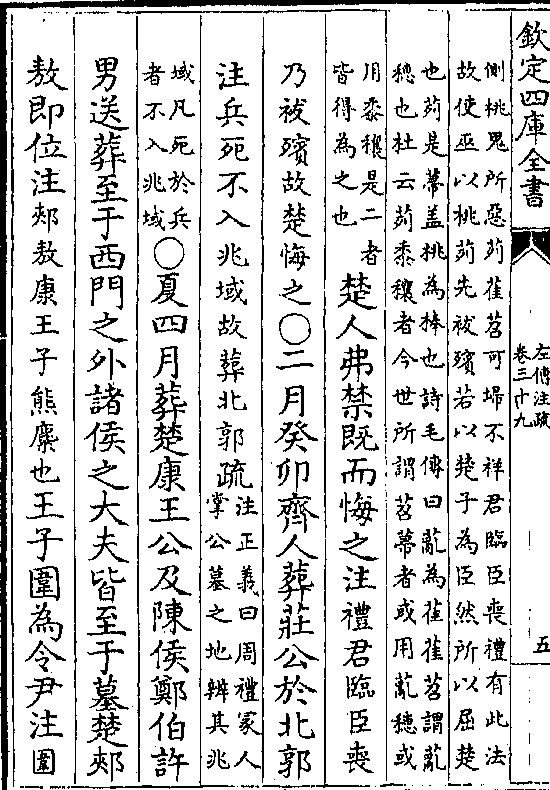 欽定四庫全書
左傳注疏
卷三十九
五
側桃鬼所惡茢萑苕可埽不祥君臨臣喪禮有此法
故使巫以桃茢先祓殯若以楚子為臣然所以屈楚
也茢是蔕盖桃為棒也詩毛傳曰薍為萑萑苕謂薍
穗也杜云茢黍穰者今世所謂苕蔕者或用薍穗或
用黍穰是二者
皆得為之也
楚人弗禁既而悔之注禮君臨臣喪
乃祓殯故楚悔之○二月癸卯齊人葬莊公於北郭
注兵死不入兆域故葬北郭疏
注正義曰周禮冢人
掌公墓之地辨其兆
域凡死於兵
者不入兆域
○夏四月葬楚康王公及陳侯鄭伯許
男送葬至于西門之外諸侯之大夫皆至于墓楚郟
敖即位注郟敖康王子熊麇也王子圍為令尹注圍